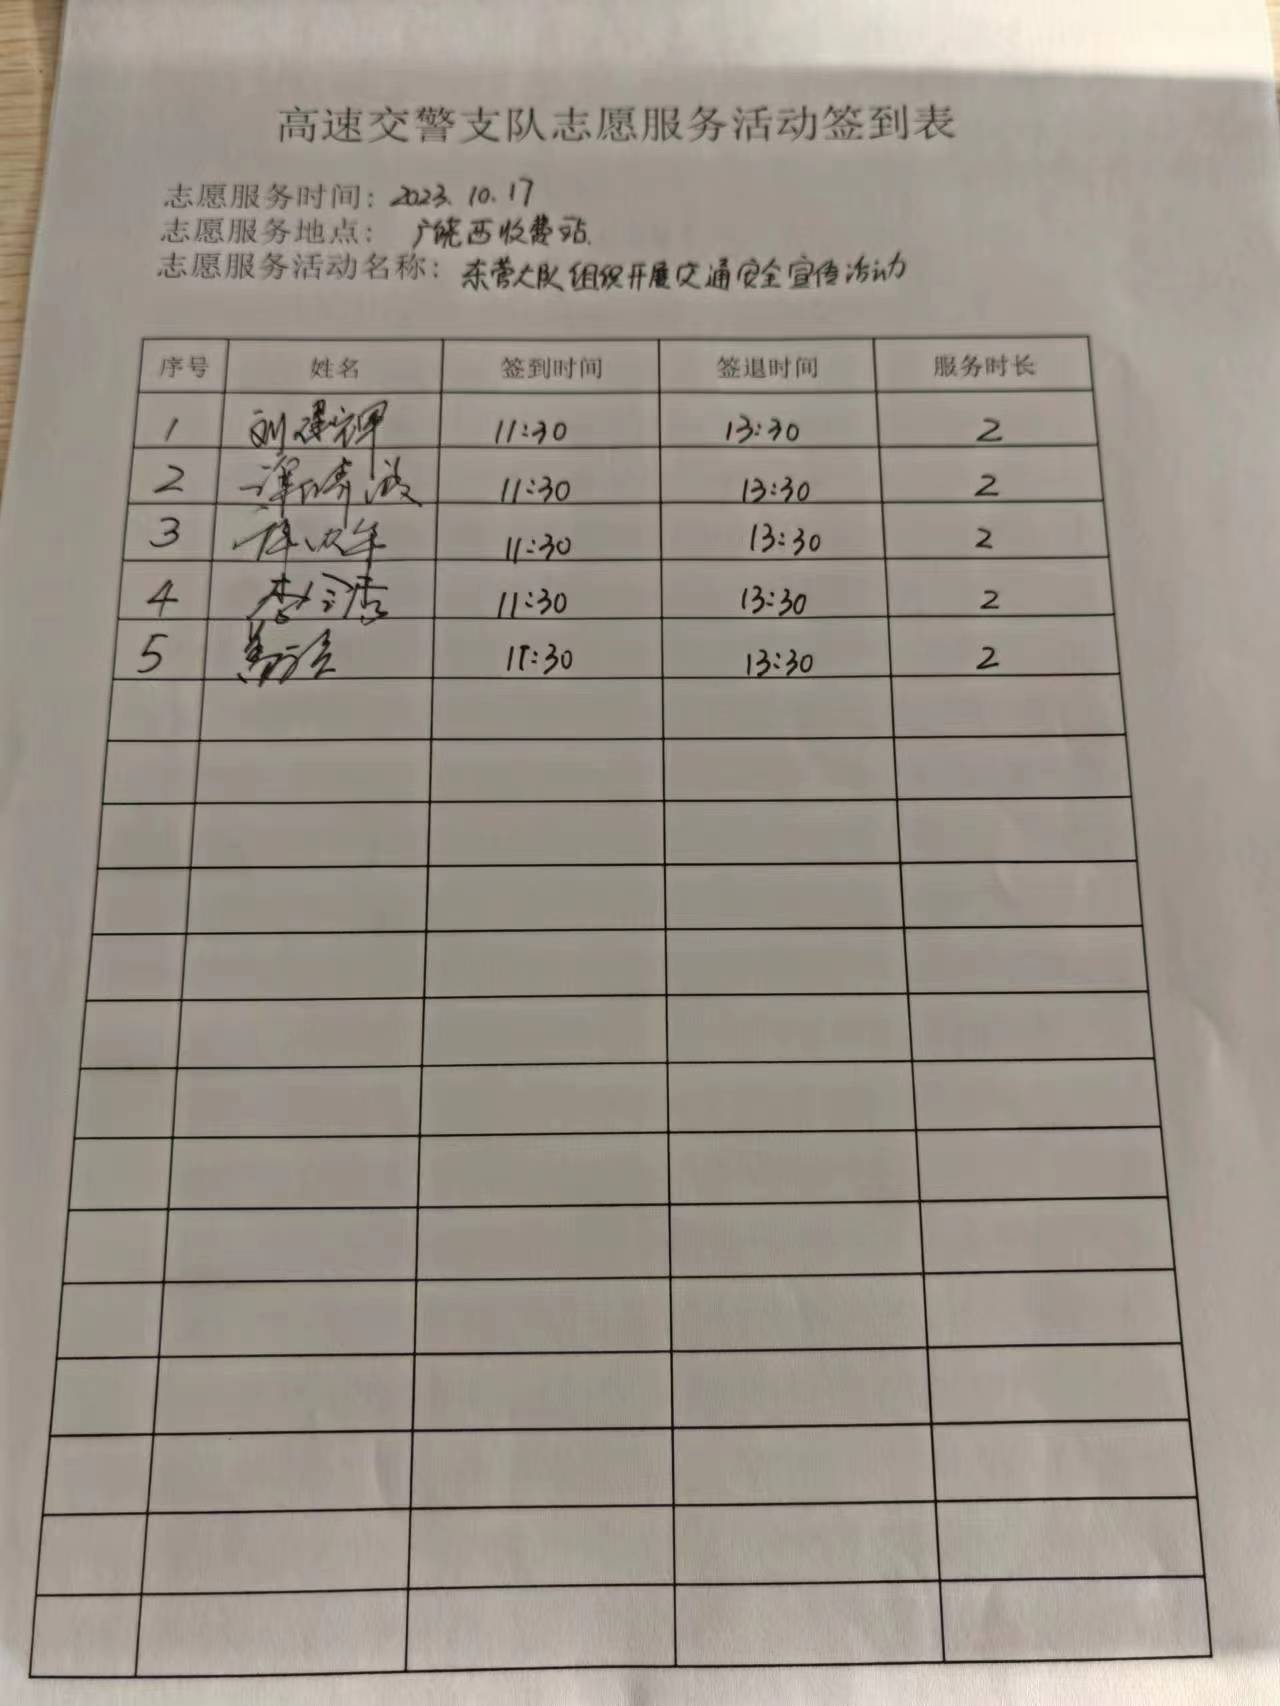 高速交警支队志愿服务活动签到表
志愿服务时间：2023.10.17
志愿服务地点：广饶西收费站
志愿服务活动名称：东营大队组织开展交通安全宣传活动
序号 姓名 签到时间 签退时间 服务时长
1 刘建辉 11:30 13:30 2
2 11:30 13:30 2
3 11:30 13:30 2
4 李 11:30 13:30 2
5 11:30 13:30 2